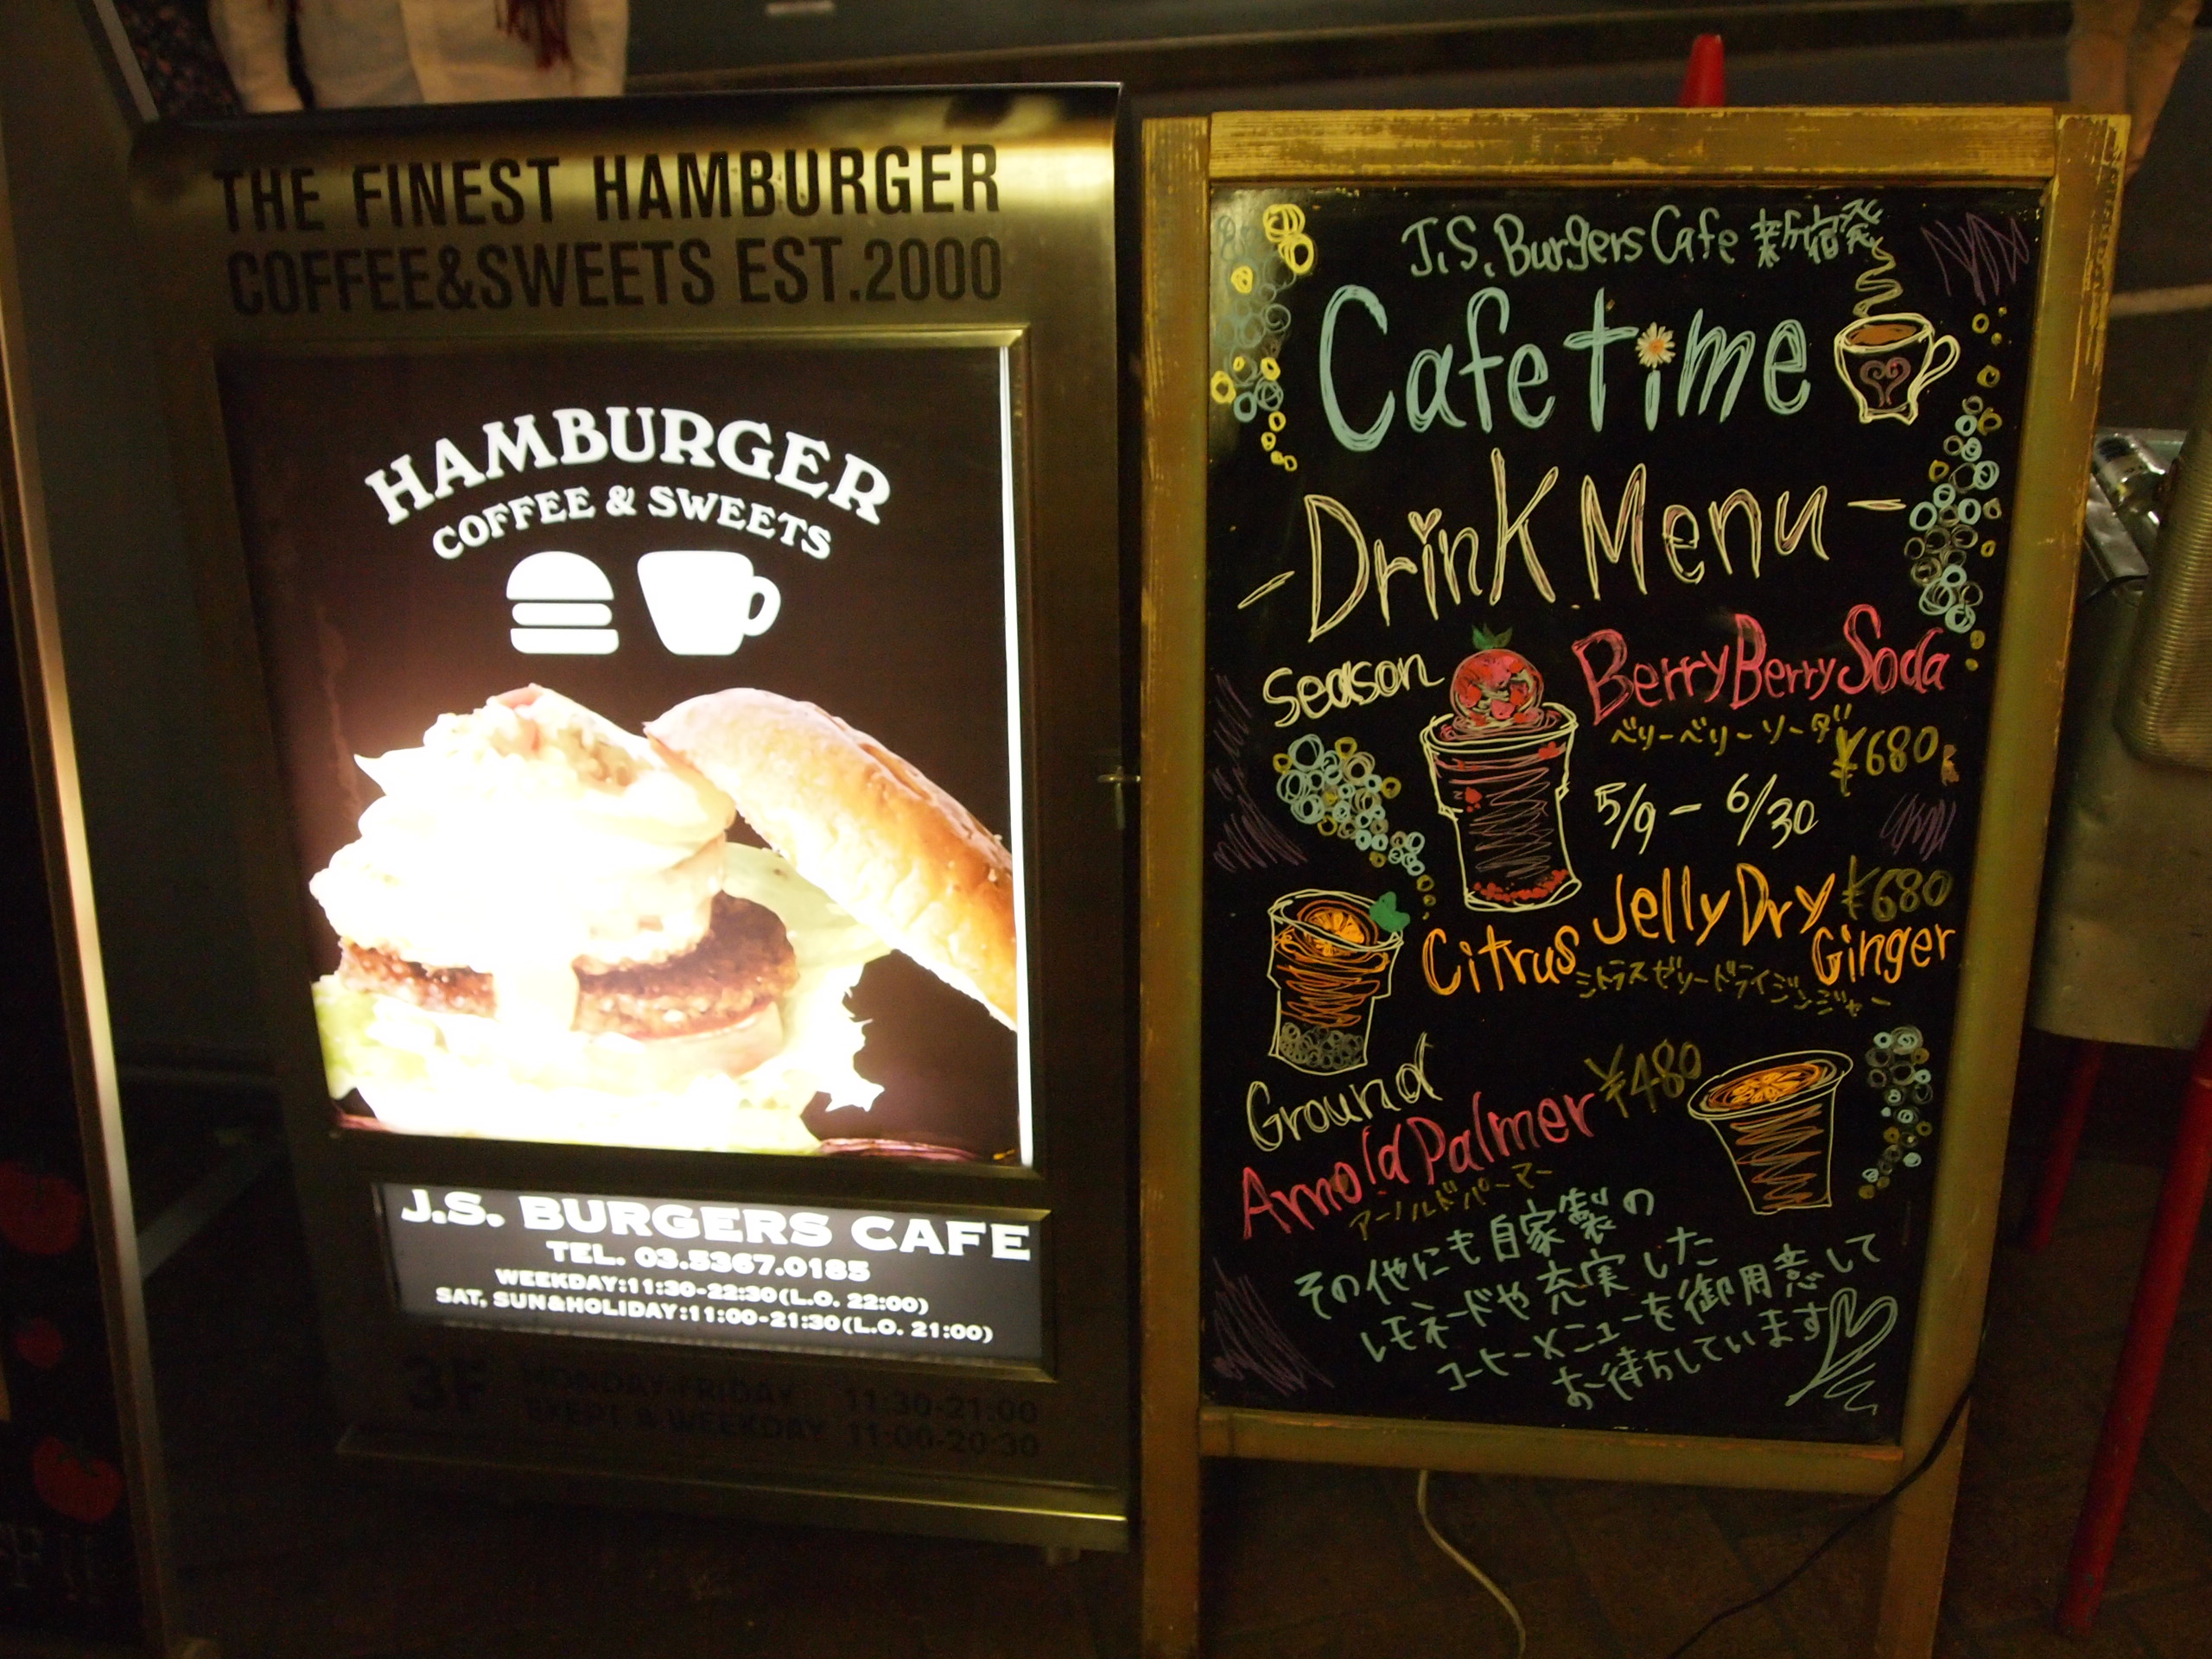 THE FINEST HAMBURGER
COFFEE&SWEETS EST.2000
HAMBURGER
COFFEE & SWEETS
J.S. BURGERS CAFE
TEL. 03.5367.0185
WEEKDAY:11:30-22:30(L.O. 22:00)
SAT, SUN&HOLIDAY:11:00-21:30(L.O. 21:00)
3F
MONDAY-FRIDAY 11:30-21:00
WEEKDAY 11:00-20:30
J.S. Burgers Cafe 新宿発
Cafe time
-Drink Menu-
Season
Berry Berry Soda
ベリーベリーソーダ
¥680
5/9 - 6/30
Citrus Jelly Dry Ginger
¥680
シトラスゼリードライジンジャー
Ground
Arnold Palmer ¥480
アーノルドパーマー
その他にも自家製の
レモネードや充実した
コーヒーメニューを御用意して
お待ちしています